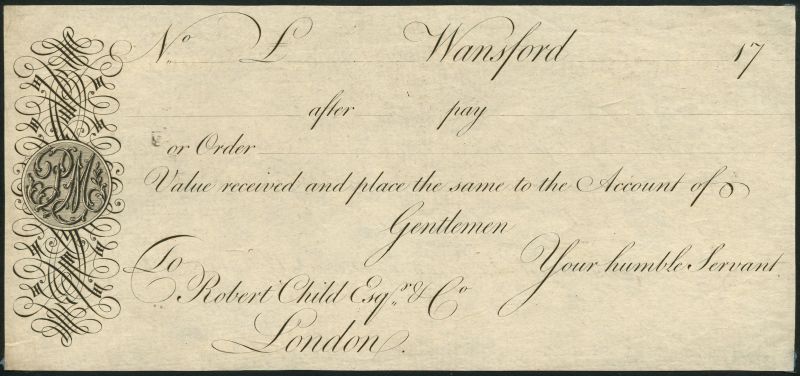 No £ Wansford 17
after pay
or Order
Value received and place the same to the Account of
Gentlemen
Your humble Servant
To
Robert Child Esqr. & Co
London.
PM